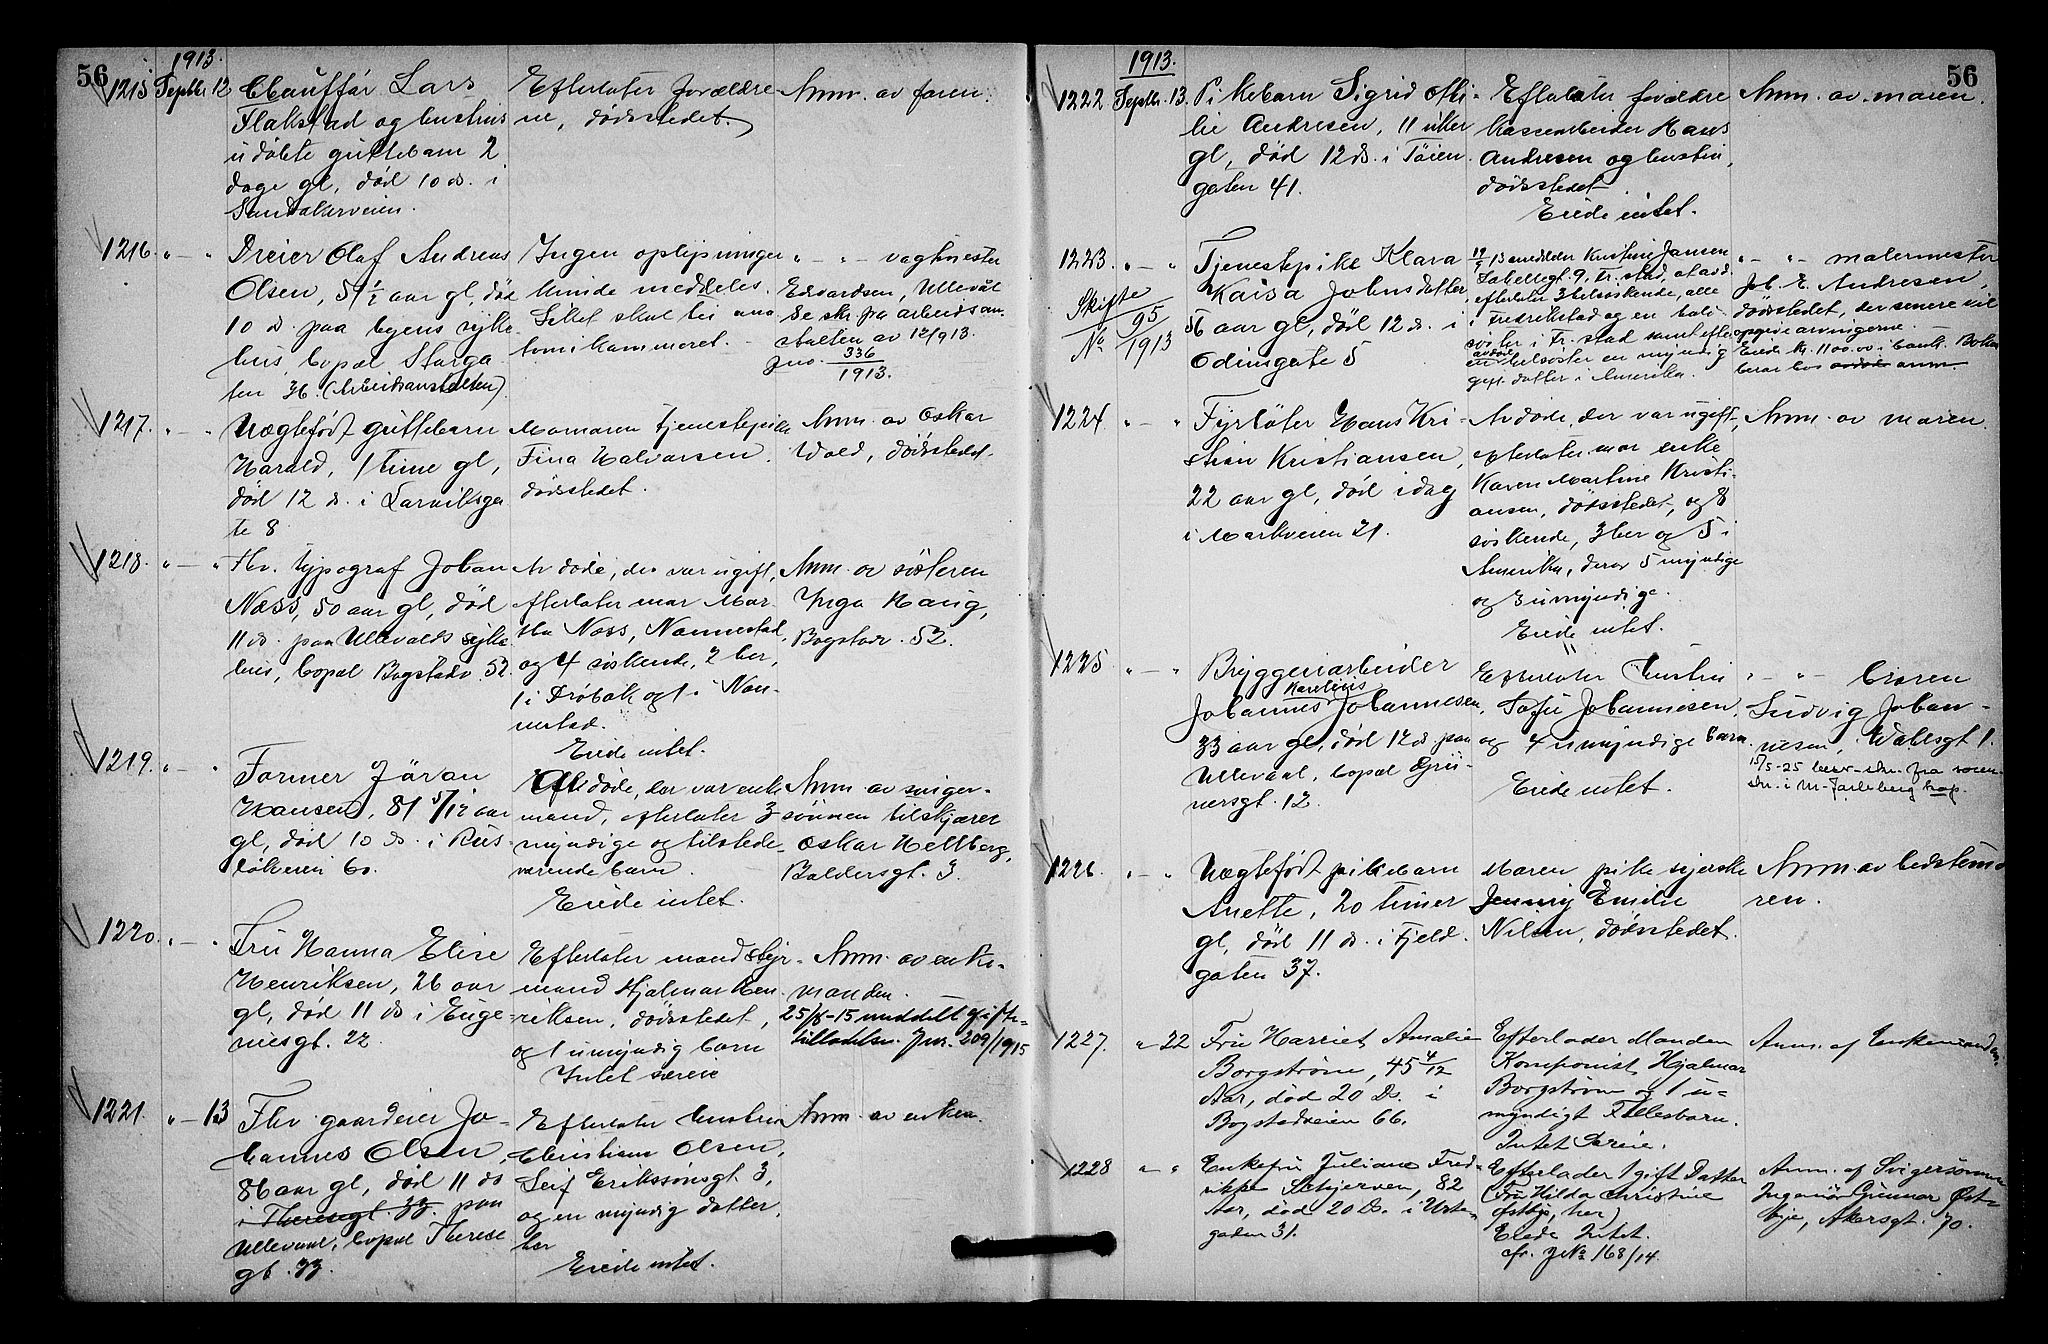 56
1913.
1215 Septbr. 12 Chauffør Lars
Flakstad og hustrus
udøbte guttebarn 2
dage gl, død 10 ds. i
Sandakerveien.
Efterlater forældre
ne, dødsstedet.
Anm. av faren.
1216. " — " Dreier Olaf Andreas
Olsen, 51 1/2 aar gl, død
10 ds. paa byens syke
hus, bopæl Storga
ten 36. (Arbeidsanstalten)
Ingen oplysninger
kunde meddeles.
Liket skal til ana
tomikammeret. -
" — " — vagtmester
Edvardsen, Ullevål
Se skr. fra arbeidsan
stalten av 12/9 13.
Jno. 336
1913.
1217. " — " Uægtefødt guttebarn
Harald, 1 time gl,
død 12 ds. i Larviksga
te 8
Mor tjenestepike
Fina Halvorsen
dødsstedet.
Anm. av Oskar
Wold, dødsstedet.
1218. " — " Fhv. typograf Johan
Næss, 50 aar gl, død
11 ds. paa Ullevålds syke
hus, bopæl Bogstadv. 52.
Avdøde, der var ugift,
efterlater mor Mar-
tha Næss, Nannestad,
og 4 søskende, 2 her,
1 i Drøbak og 1 i Nan-
nestad.
Eiede intet.
Anm. av søsteren
Inga Haug,
Bogstadv. 52.
1219. " — " Former Jöran
Hansen, 81 5/12 aar
gl, død 10 ds. i Rus
løkveien 60.
Avdøde, der var enke
mand, efterlater 3
myndige og tilstede
værende barn.
Eiede intet.
Anm. av sviger-
sönnen tilskjærer
Oskar Hellberg,
Baldersgt. 3.
1220. " — " Fru Hanna Elise
Henriksen, 26 aar
gl, død 11 ds i Euge-
niesgt. 22.
Efterlater mand styr-
mand Hjalmar Hen
riksen, dødsstedet,
og 1 umyndig barn
Intet særeie
Anm. av enke-
manden.
25/8-15 meddelt gifte-
tilladelse. Jno. 209/1915
1221. " — 13 Fhv. gaardeier Jo-
hannes Olsen,
86 aar gl, død 11 ds
i Theresgt. 33. paa
Ullevaal, bopæl Therese
gt. 33.
Efterlater hustru
Christiane Olsen,
Leif Erikssönsgt. 3,
og en myndig datter,
her
Eiede intet.
Anm. av enken.
56
1913.
1222 Septbr. 13. Pikebarn Sigrid Othi-
lie Andresen, 11 uker
gl, død 12 ds. i Tøien
gaten 41.
Efterlater forældre
Kassearbeider Hans
Andresen og hustru,
dødsstedet.
Eiede intet.
Anm. av moren.
1223. " — " Tjenestepike Klara
Kaisa Johnsdatter
56 aar gl, død 12 ds. i
Odinsgate 5
Skifte
No. 95
1913
meddeler Kristine Jansen
9, Fr.stad, at avd.
efterlater 3 helsøskende, alle
i Fredrikstad og en halv
søster i Fr.stad samt efter
avdød
en helsøster en myndig
gift datter i Amerika.
" — " — malermester
Joh. E. Andresen,
dødsstedet, der senere vil
opgive arvingerne.
Eiede kr. 1100.00 i bank. Boken
beror hos avdøde anm.
1224 " — " Fyrbøter Hans Kri-
stian Kristiansen,
22 aar gl, død idag
i Markveien 21.
Avdøde, der var ugift,
efterlater mor enke
Karen Martine Kristi-
ansen, dødsstedet, og 8
søskende, 3 her og 5 i
Amerika, derav 5 myndige
og 3 umyndige.
Eiede intet.
Anm. av moren.
1225 " — " Bryggeriarbeider
Karelius
Johannes Johannesen,
33 aar gl, død 12 ds. paa
Ullevaal, bopæl Grü-
nersgt. 12.
Efterlater hustru
Sofie Johannesen,
og 4 umyndige barn.
Eiede intet.
" — " — broren
Ludvig Johan-
nesen, Wahlsgt 1.
15/5-25 besv. skr. fra soren-
skr. i M-Jarlsberg
1226. " — " Uægtefødt pikebarn
Anette, 20 timer
gl, død 11 ds. i Fjeld-
gaten 37.
Moren pike syerske
Jenny Emilie
Nilsen, dødsstedet.
Anm. av bedstemo
ren.
1227. " 22 Fru Harriet Amalie
Borgstrøm, 45 4/12
Aar, død 20 Ds. i
Bogstadveien 66.
Efterlader Manden
Komponist Hjalmar
Borgstrøm og 1 u-
myndigt Fællesbarn.
Intet Særeie.
Anm. af Enkemanden.
1228 " — " Enkefru Juliane Fred-
rikke Schjerven, 82
Aar, død 20 Ds. i Urte-
gaden 31.
Efterlader 1 gift Datter
(Fru Hilda Christine
Østbye, her)
Eiede Intet.
cfr. J No 168/14.
Anm. af Svigersønnen
Ingeniør Gunnar Øst-
bye, Akersgt. 70.